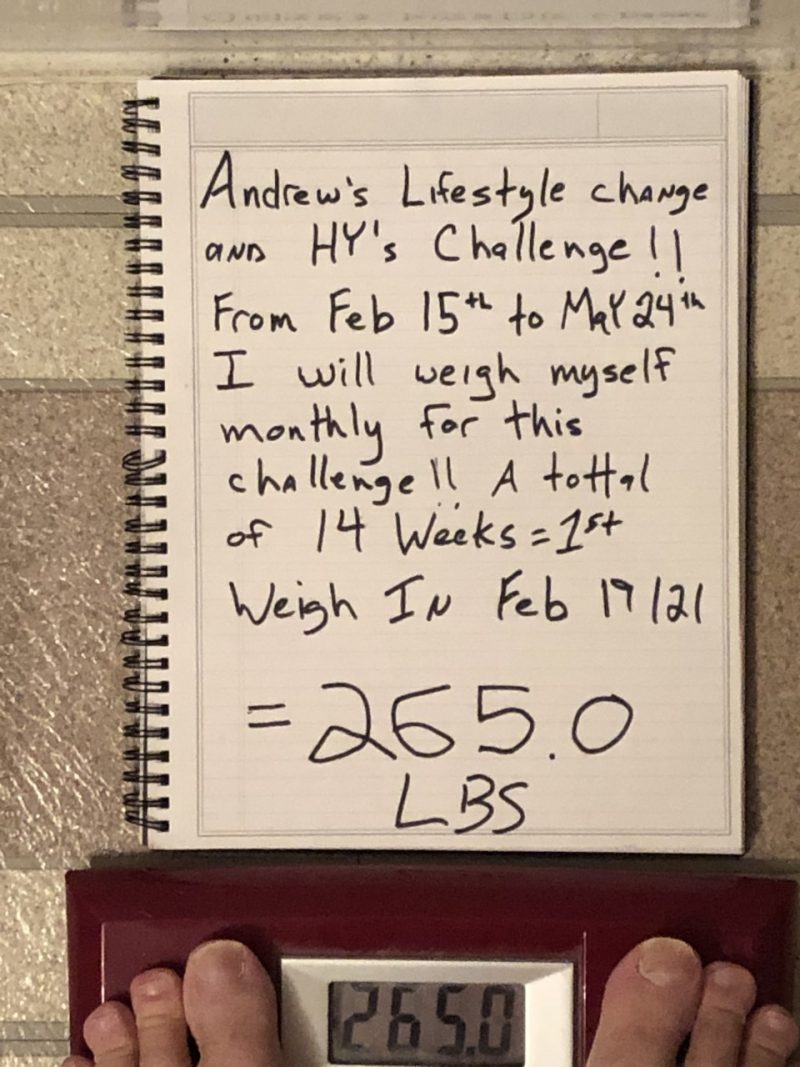 Andrew's Lifestyle change
AND HY's Challenge!!
From Feb 15th to May 24th
I will weigh myself
monthly for this
challenge!! A tottal
of 14 Weeks = 1st
Weigh IN Feb 19/21
= 265.0
LBS
265.0